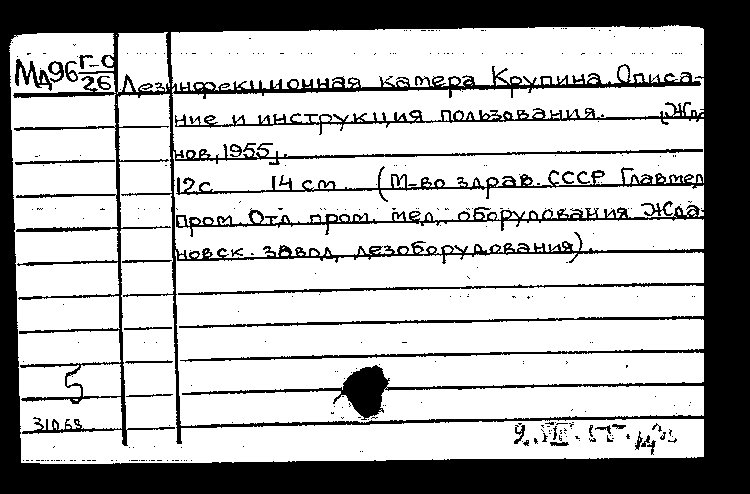 Мд96 Г-0/26
Дезинфекционная камера Крупина. Описа-
ние и инструкция пользования. [Жда
нов, 1955].
12с 14 cm (М-во здрав. СССР Главмед
пром. Отд. пром. мед. оборудования Жда-
новск. завод дезоборудования).
5
31068
2.VIII.55.